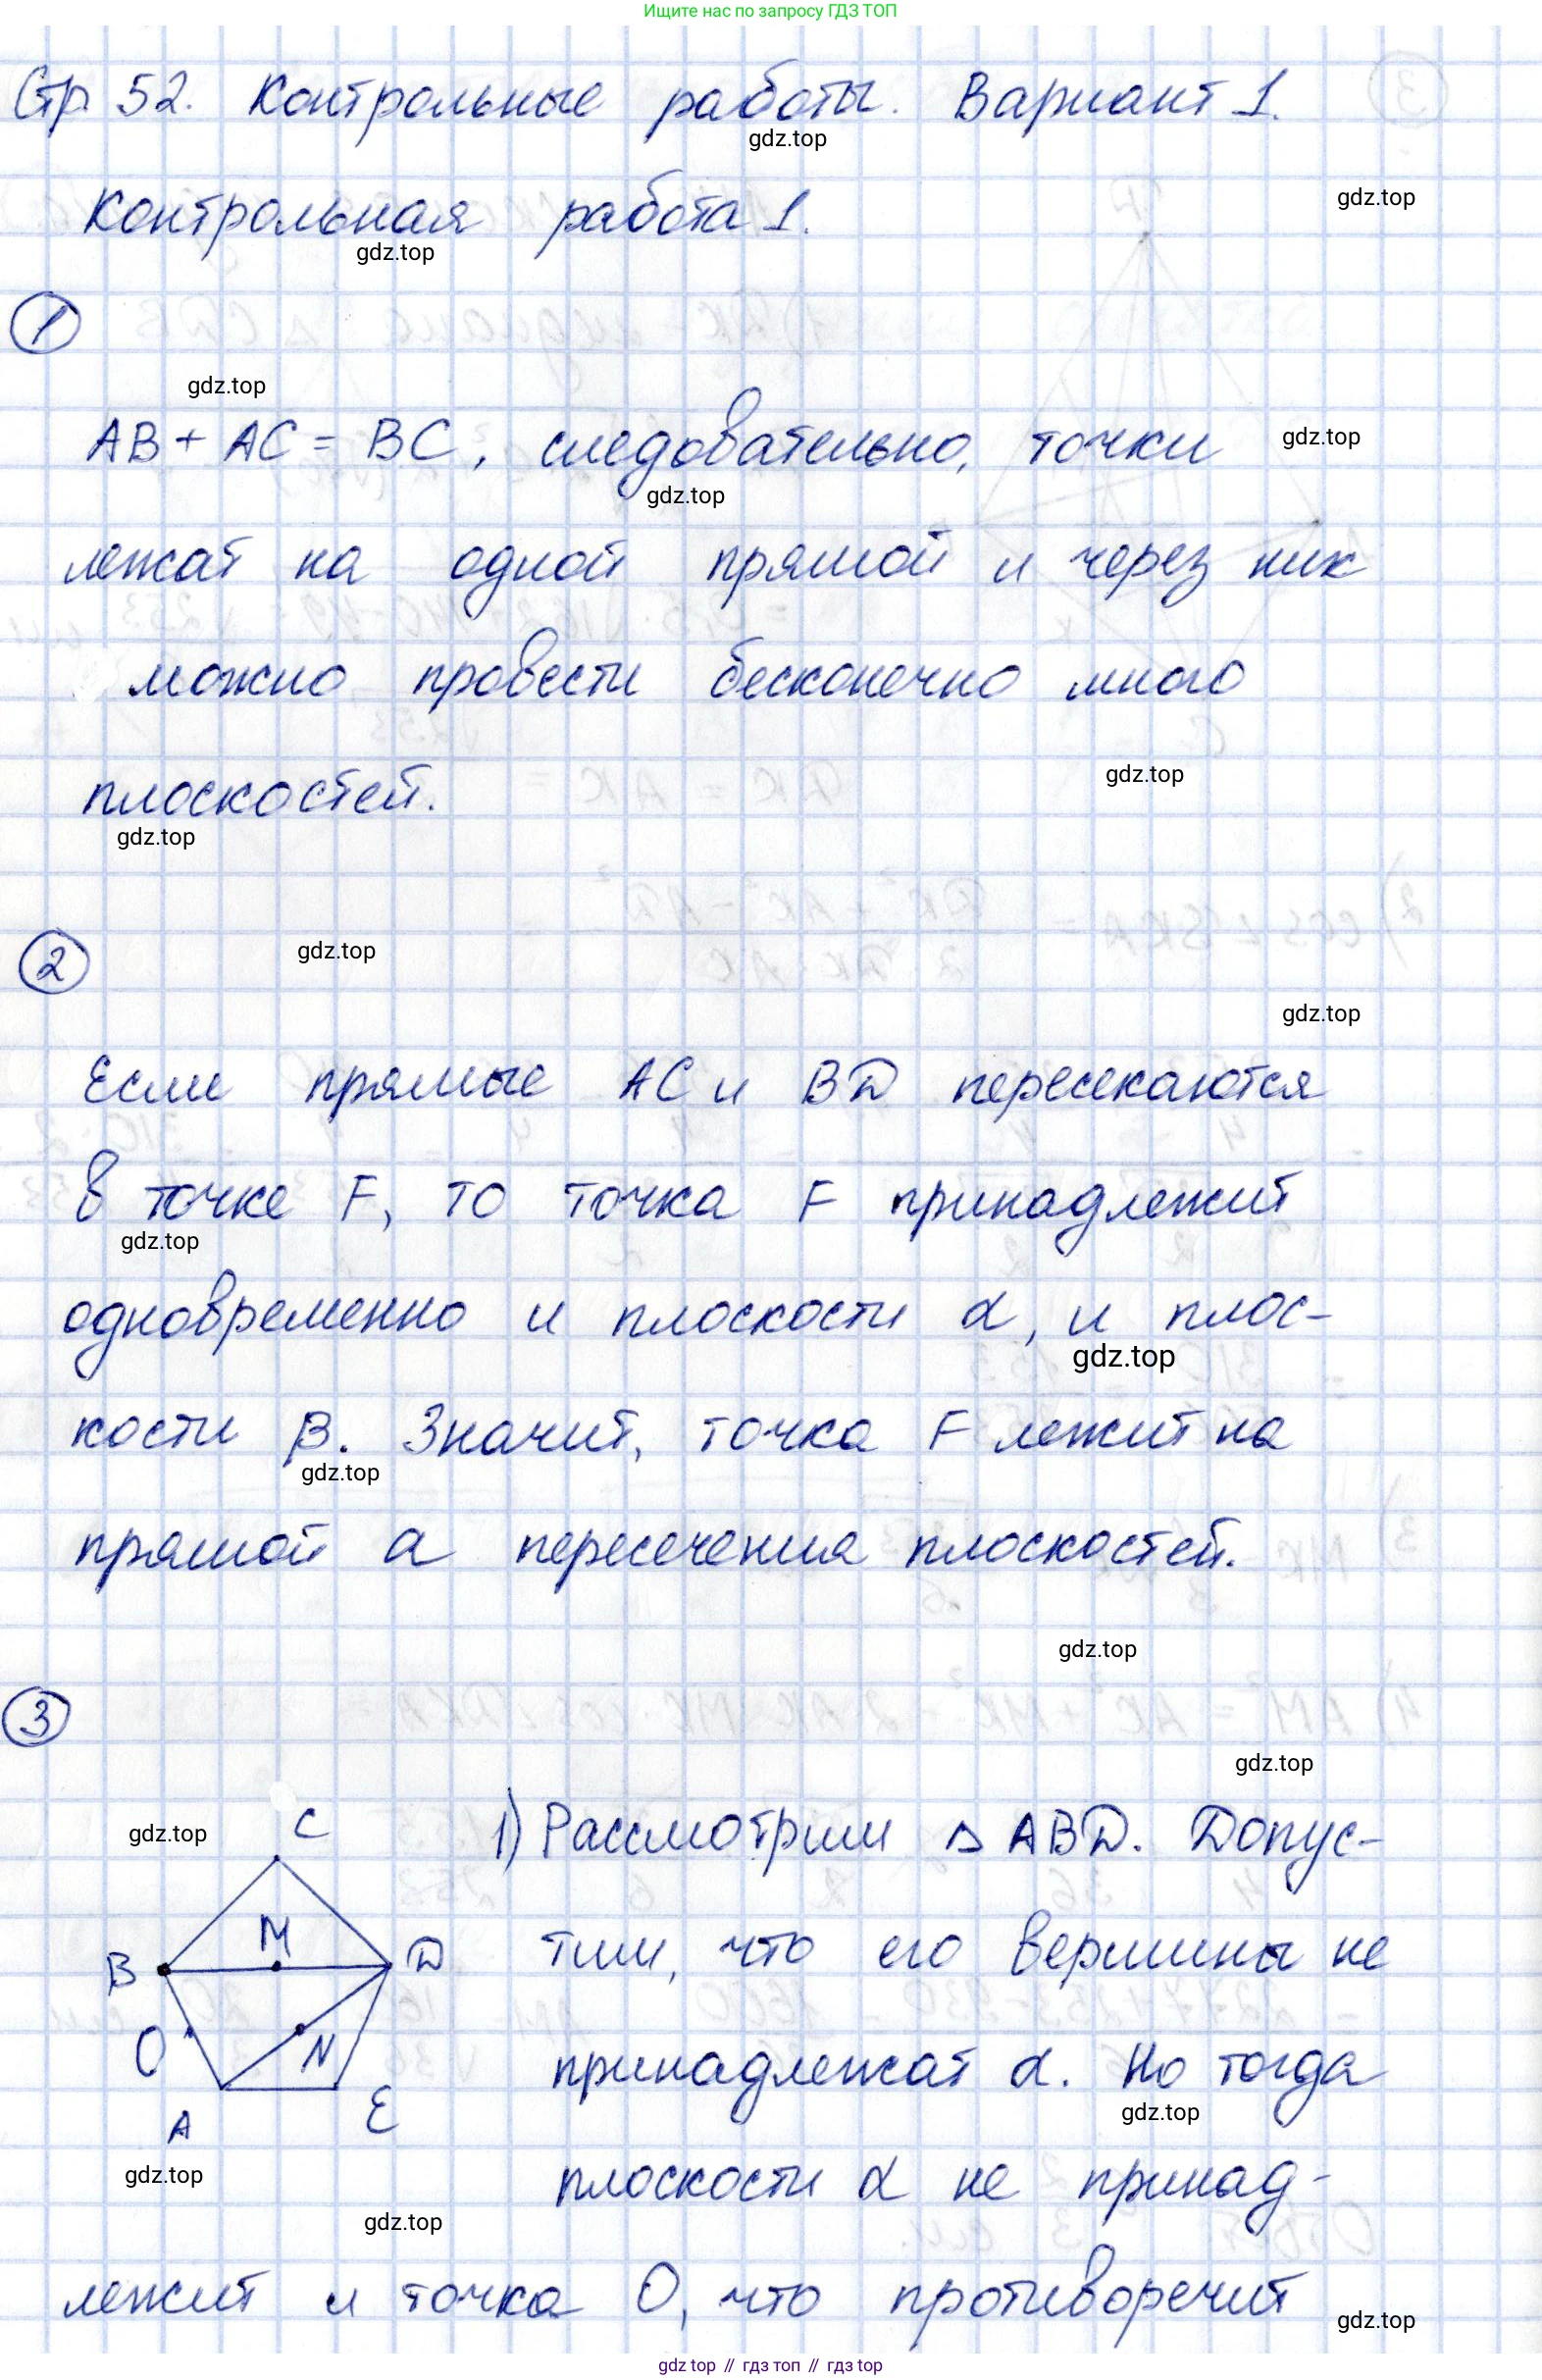 Ищите нас по запросу ГДЗ ТОП
Стр 52. Контрольные работы. Вариант 1.
gdz.top
Контрольная работа 1.
gdz.top
gdz.top
1
gdz.top
AB + AC = BC, следовательно, точки
gdz.top
gdz.top
лежат на одной прямой и через них
можно провести бесконечно много
плоскостей.
gdz.top
gdz.top
2
gdz.top
gdz.top
Если прямые AC и BD пересекаются
в точке F, то точка F принадлежит
gdz.top
одновременно и плоскости α, и плос-
gdz.top
кости β. Значит, точка F лежит на
gdz.top
прямой a пересечения плоскостей.
gdz.top
3
gdz.top
C
gdz.top
1) Рассмотрим △ ABD. Допус-
M
B
D
тим, что его вершины не
O
N
принадлежат α. Но тогда
A
E
gdz.top
gdz.top
плоскости α не принад-
gdz.top
лежит и точка O, что противоречит
gdz.top
gdz top // гдз топ // гдз top